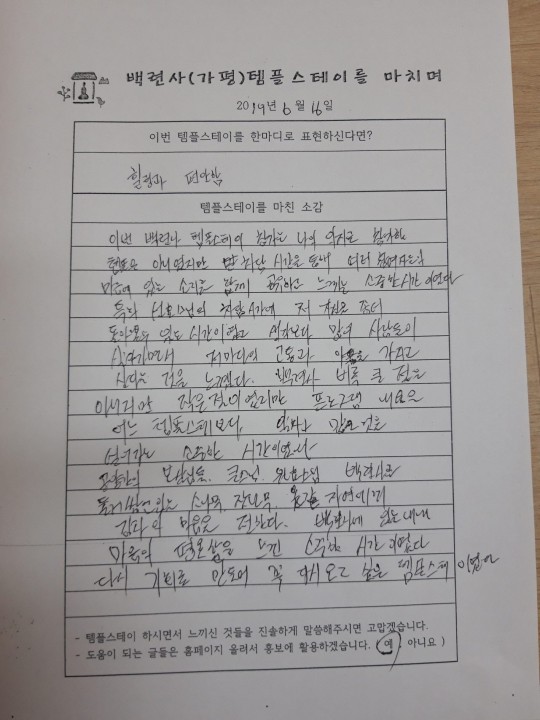 백련사(가평)템플스테이를 마치며
2019년 6월 16일
이번 템플스테이를 한마디로 표현하신다면?
힐링과 편안함
템플스테이를 마친 소감
이번 백련사 템플스테이 참가는 나의 의지로 참가한
템플은 아니였지만 시간을 통해 여러 참여자들의
마음에 있는 소리를 함께 공유하고 느끼는 소중한 시간이였다
특히 스님의 저 자신을 좀더
돌아볼수 있는 시간이였고 생각보다 많은 사람들이
살아가면서 저마다의 고통과 아픔을 가지고
산다는 것을 느꼈다. 백련사 비록 큰 절은
아니지만 작은절이였지만 프로그램 내용은
어느 템플스테이보다, 값진 것을
소중한 시간이였다
공양간의 보살님들, 큰스님, 백련사를
둘러쌓인 소나무, 잣나무, 자연에게
감사의 마음을 전한다. 백련사에 있는내내
마음의 편온함을 느낀 소중한 시간이였다
다시 기회를 만들어 꼭 다시오고 싶은 템플스테이였다
- 템플스테이 하시면서 느끼신 것들을 진솔하게 말씀해주시면 고맙겠습니다.
- 도움이 되는 글들은 홈페이지 올려서 홍보에 활용하겠습니다. (예, 아니요 )